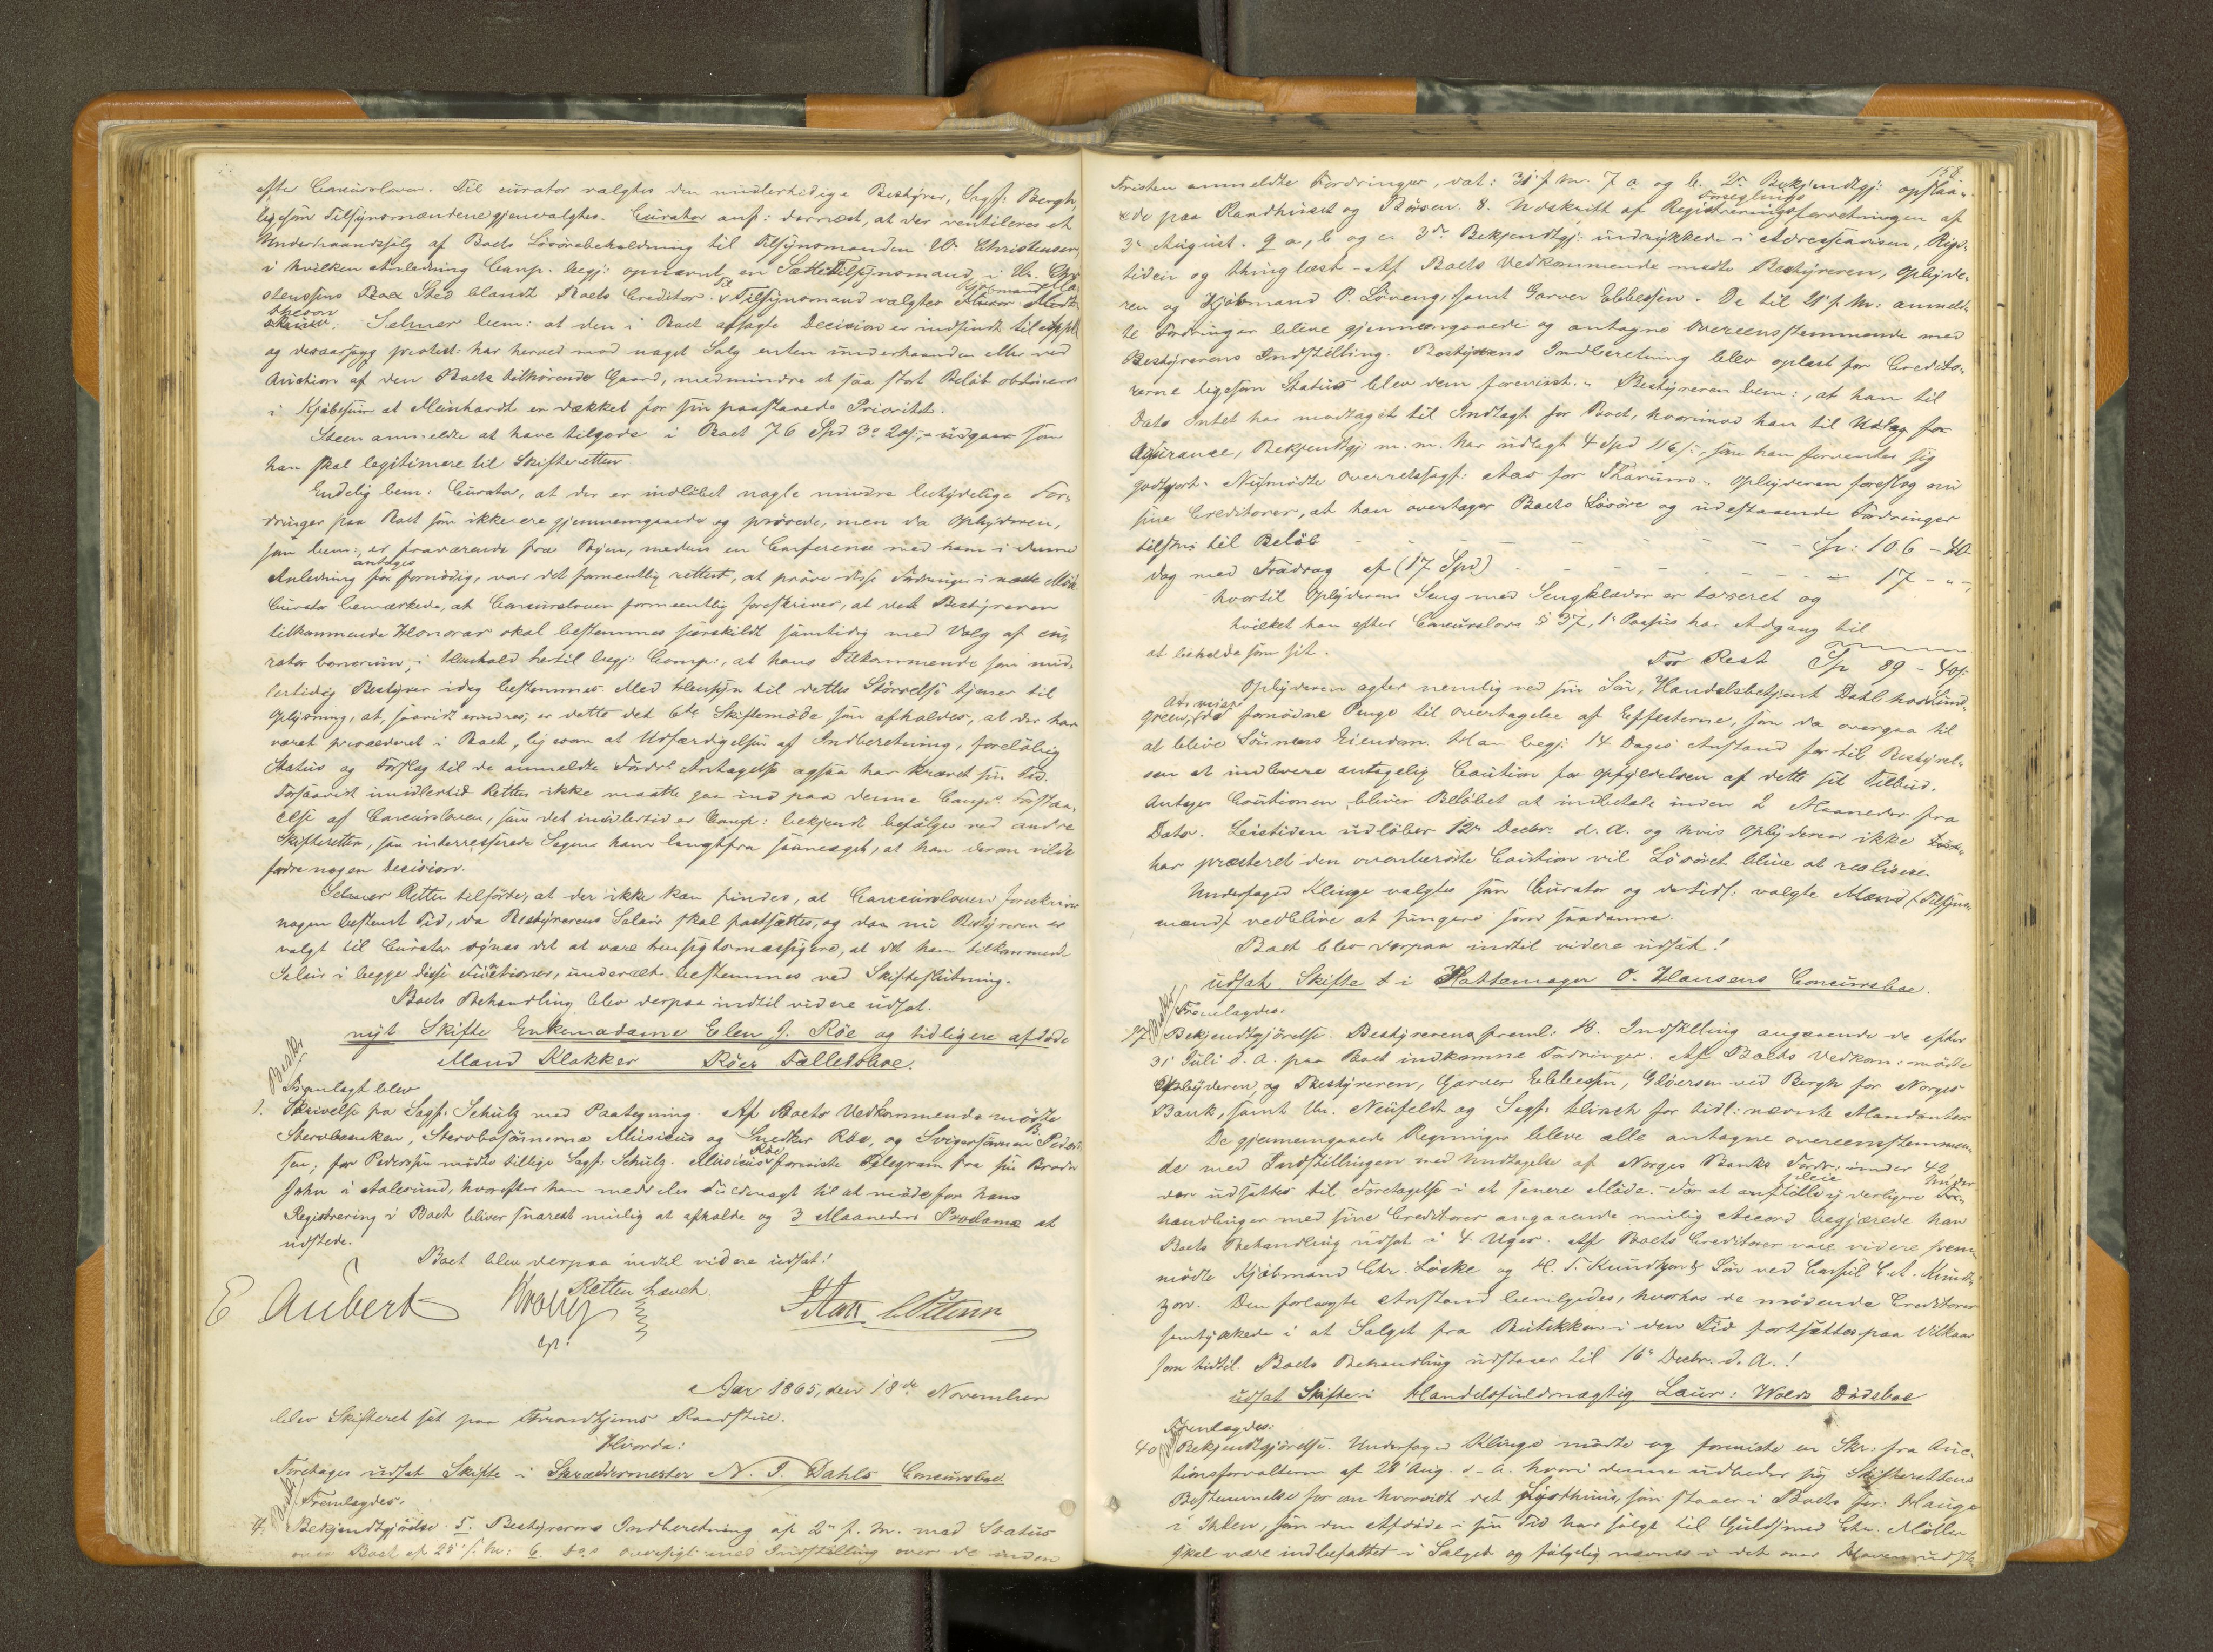 efter Concursloven. Til curator valgtes den midlertidige Bestyrer, Sagf: Bergh,
ligesom Tilsynsmændene gjenvalgtes. Curator anf: dernæst, at der ventileres et
Underhaandssalg af Boets Løsørebeholdning til Tilsynsmanden W. Christensen,
i hvilken Anledning Comp. begj: opnævnt en Sættetilsynsmand i Hr. Chri
stensens Sted blandt Boets Creditor. Til Tilsynsmand valgtes Kjøbmand
Selmer bem: at den i Boet afsagte Decision er indfindt til appl
og desaarsag protest: har herved mod noget Salg enten underhaanden eller ved
Auction af den Boets tilhørende Gaard, medmindre et saa stort Beløb obtineres
i Kjøbesum at Meinhardt er dækket for sin paastaaede Prioritet.
Steen anmeldte at have tilgode i Boet 76 Spd 3 20 som
han skal legitimere til Skifteretten.
Endelig bem: Curator, at der er indløbet nogle mindre betydelige For-
dringer paa Boet som ikke ere gjennemgaaede og prøvede, men da Opbyderen,
som bem:, er fraværende fra Byen, medens en Conference med ham i denne
Anledning antages fornødig, var det formentlig rettest, at prøve disse Fordringer i næste Møde.
Curator bemærkede, at Concursloven formeentlig foreskriver, at det Bestyreren
tilkommende Honorar skal bestemmes særskildt samtidig med Valg af cu-
rator bonorum; i Henhold hertil begj: Comp:, at hans Tilkommende som mid-
lertidig Bestyrer idag bestemmes. Med Hensyn til dettes Størrelse tjener til
Oplysning, at, saavidt erindres, er dette det 6te Skiftemøde som afholdes, at der har
været procederet i Boet, ligesom at Udfærdigelsen af Indberetning, foreløbig
Status og Forslag til de anmeldte Fordrs Antagelse ogsaa har krævet sin Tid.
Forsaavidt imidlertid Retten ikke maatte gaa ind paa denne Comps Forstaa-
else af Concursloven, som det imidlertid er Comp: bekjendt befølges ved andre
Skifteretter, saa interresserede Sagen ham langtfra saameget, at han derom vilde
fordre nogen Decision.
Selmer Retten tilførte, at der ikke kan findes, at Concursloven foreskriver
nogen bestemt Tid, da Bestyrerens Salair skal fastsættes, og da nu Bestyreren er
valgt til Curator synes det at være hensigtsmæssigere, at det ham tilkommende
Salair i begge disse Functioner, underet bestemmes ved Skifteslutning.
Boets Behandling blev derpaa indtil videre udsat.
nyt Skifte Enkemadame Elen J. Röe og tidligere afdøde
Mand Klokker Röes Fællesboe.
Fremlagt blev
1. Skrivelse fra Sagf. Schulz med Paategning. Af Boets Vedkommende mødte
Stervboenken, Stervbosønnerne Musicus og Snedker Röe, og Svigersønnen B. Peder-
sen; for Pedersen mødte tillige Sagf. Schulz. Musicus Röe foreviste Telegram fra sin Broder
John i Aalesund, hvorefter han meddeles Fuldmagt til at møde for ham
Registrering i Boet bliver snarest mulig at afholde og 3 Maaneders Proclama at
udstede.
Boet blev derpaa indtil videre udsat!
Retten hævet.
E Aubert
Aar 1865, den 18de November
blev Skifteret sat paa Throndhjems Raadstue.
Hvorda:
Foretages udsat Skifte i Skræddermester N. J. Dahls Concursboe.
Fremlagdes:
4. Bekjendtgjørelse. 5. Bestyrerens Indberetning af 2n f. M. med Status
over Boet af 25 f. M: 6. Oversigt med Indstilling over de inden
158.
Fristen anmeldte Fordringer, dat: 31 f. M. 7 a og b. 2de Bekjendtgj: opslaa-
ede paa Raadhuset og Børsen. 8. Udskrift af Forseglings Registreringsforretningen af
3 August. 9 a, b og c. 3de Bekjendtgj: indrykkede i Adresseavisen, Rigs-
tiden og thinglæst. Af Boets Vedkommende mødte Bestyreren, Opbyde-
ren og Kjøbmand P. Löveng, samt Garver Ebbesen. De til 21 f. M: anmeld-
te Fordringer bleve gjennemgaaede og antagne overeensstemmende med
Bestyrerens Indstilling. Bestyrerens Indberetning blev oplæst for Credito-
rerne ligesom Status blev dem forevist. Bestyreren bem:, at han til
Dato Intet har modtaget til Indtægt for Boet, hvorimod han til Udlæg for
Assurance, Bekjendtgj: m. m. har udlagt 4 Spd 116 s, som han forventer sig
godtgjort. Nu mødte Overretssagf: Aas for Tharum. Opbyderen foreslog nu
sine Creditorer, at han overtager Boets Løsøre og udestaaende Fordringer
tilsam: til Beløb - - - - - - - Sp: 106 - 40
dog med Fradrag af (17 Spd) - - - - - - 17 - " -
hvortil Opbyderens Seng med Sengklæder er taxeret og
hvilket han efter Concurslovs § 37, 1 Passus har Adgang til
at beholde som sit.
For Rest Sp 89 - 40 s.
Opbyderen agter nemlig ved sin Søn, Handelsbetjent Dahl hos Lund-
green, at fornødne Penge til Overtagelse af Effecterne, som da overgaa til
at blive Sønnens Eiendom. Han begj: 14 Dages Anstand for til Bestyrel-
sen at indlevere antagelig Caution for Opfyldelsen af dette sit Tilbud.
Antages Cautionen bliver Beløbet at indbetale inden 2 Maaneder fra
Dato. Leietiden udløber 12 Decbr. d. A. og hvis Opbyderen ikke
har præsteret den ovenberørte Caution vil Løsøret blive at realisere.
Underfoged Klinge valgtes som Curator og de tidl: valgte Mænd (Tilsyns-
mænd) vedblive at fungere som saadanne.
Boet blev derpaa indtil videre udsat!
udsat Skifte i Hattemager O. Hansens Concursboe.
Fremlagdes:
17 Bekjendtgjørelse. Bestyreren freml: 18. Indstilling angaaende de efter
31 Juli d. A. paa Boet indkomne Fordringer. Af Boets Vedkom: mødte
Opbyderen, og Bestyreren, Garver Ebbesen, Gløersen ved Bergh for Norges
Bank, samt Hr. Neufeldt og Sagf: Hirsch for tidl: nævnte Mandanter.
De gjennemgaaede Regninger bleve alle antagne overeensstemmen-
de med Indstillingen med Undtagelse af Norges Banks Fordr: under 42,
der udsattes til Foretagelse i et senere Møde. For at anstille yderligere Un-
handlinger med sine Creditorer angaaende mulig Accord begjærede han
Boets Behandling udsat i 4 Uger. Af Boets Creditorer vare videre frem-
mødte Kjøbmand Chr. Löcke og H. T. Kundtzon & Søn ved Consul C. A. Kundt-
zon. Den forlangte Anstand bevilgedes, hvorhos de mødende Creditorer
samtykkede i at Salget fra Butikken i den Tid fortsættes paa Vilkaar
som hidtil. Boets Behandling udstaaer til 16 Decbr. d. A.!
udsat Skifte i Handelsfuldmægtig Laur: Wolds Dödsboe
Fremlagdes:
40 Bekjendtgjørelse. Underfoged Klinge mødte og foreviste en Skr: fra Auc-
tionsforvalteren af 28 Aug. d. A. hvori denne udbeder sig Skifterettens
Bestemmelse for om hvorvidt det Lysthuus, som staaer i Boets Hauge
i Ihlen, som den Afdøde i sin Tid har solgt til Guldsmed Chr. Möller
skal være indbefattet i Salget og følgelig nævnes i det over Haven